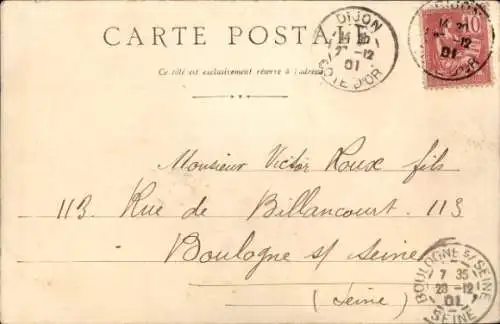 CARTE POSTALE
DIJON
2 -12
01
COTE D'OR
DIJON
-12
01
10
Ce côté est exclusivement réservé à l'adresse
Monsieur Victor Roux fils
113 Rue de Billancourt. 113
Boulogne s/ Seine
(Seine)
BOULOGNE S/ SEINE
7 35
23 -12
01
SEINE